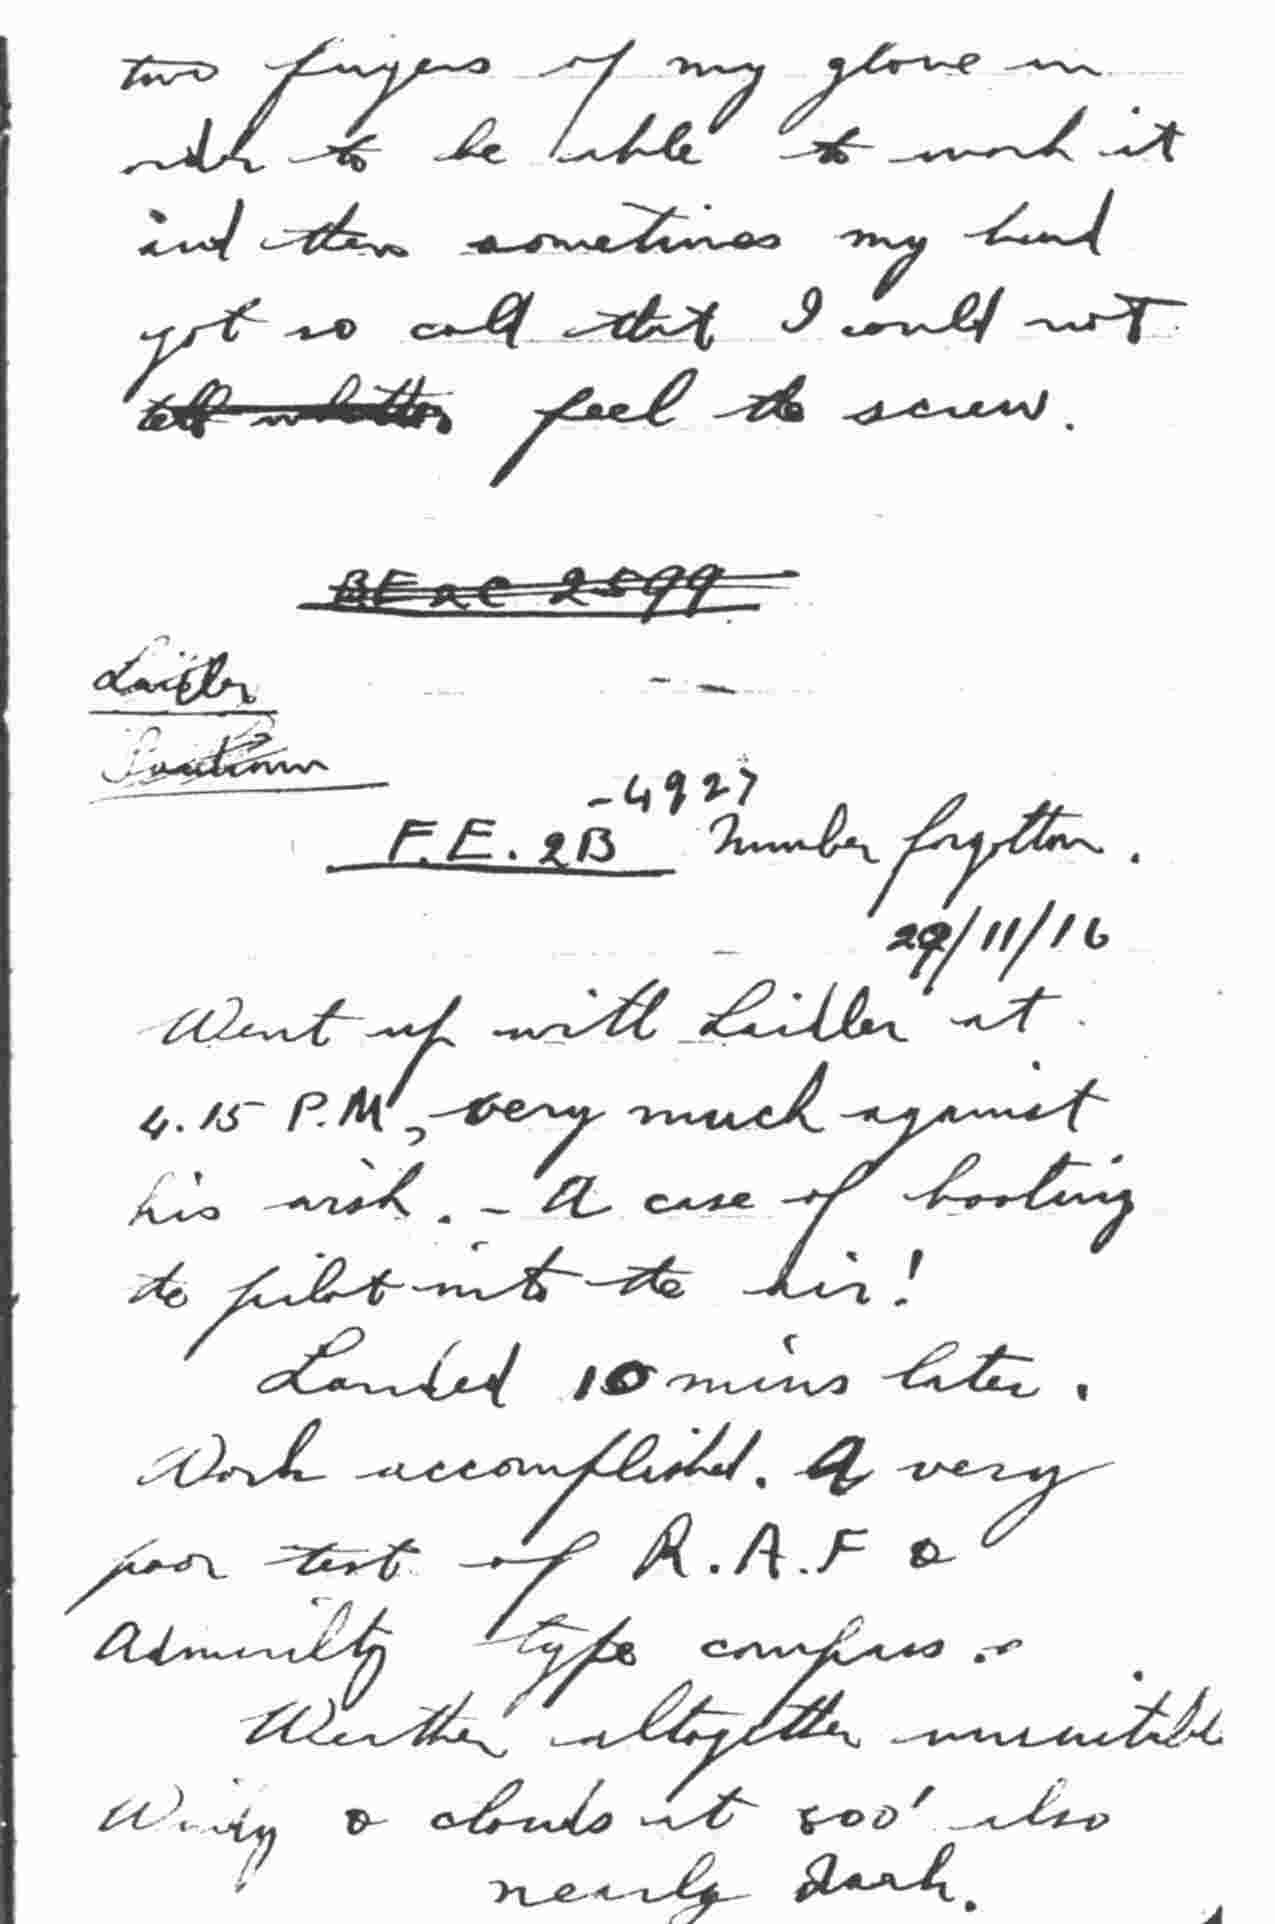 two fingers of my glove in
order to be able to work it
and then sometimes my hand
got so cold that I could not
tell whether feel the screw.
BE 2C 2599
Laidler
-4927
F.E. 2B Number forgotten.
29/11/16
Went up with Laidler at
4.15 P.M, very much against
his wish. - A case of booting
the pilot into the air!
Landed 10 mins later.
Work accomplished. A very
poor test of R.A.F &
Admirilty type compass.
Weather altogether unsuitable
Windy & clouds at 800' also
nearly dark.